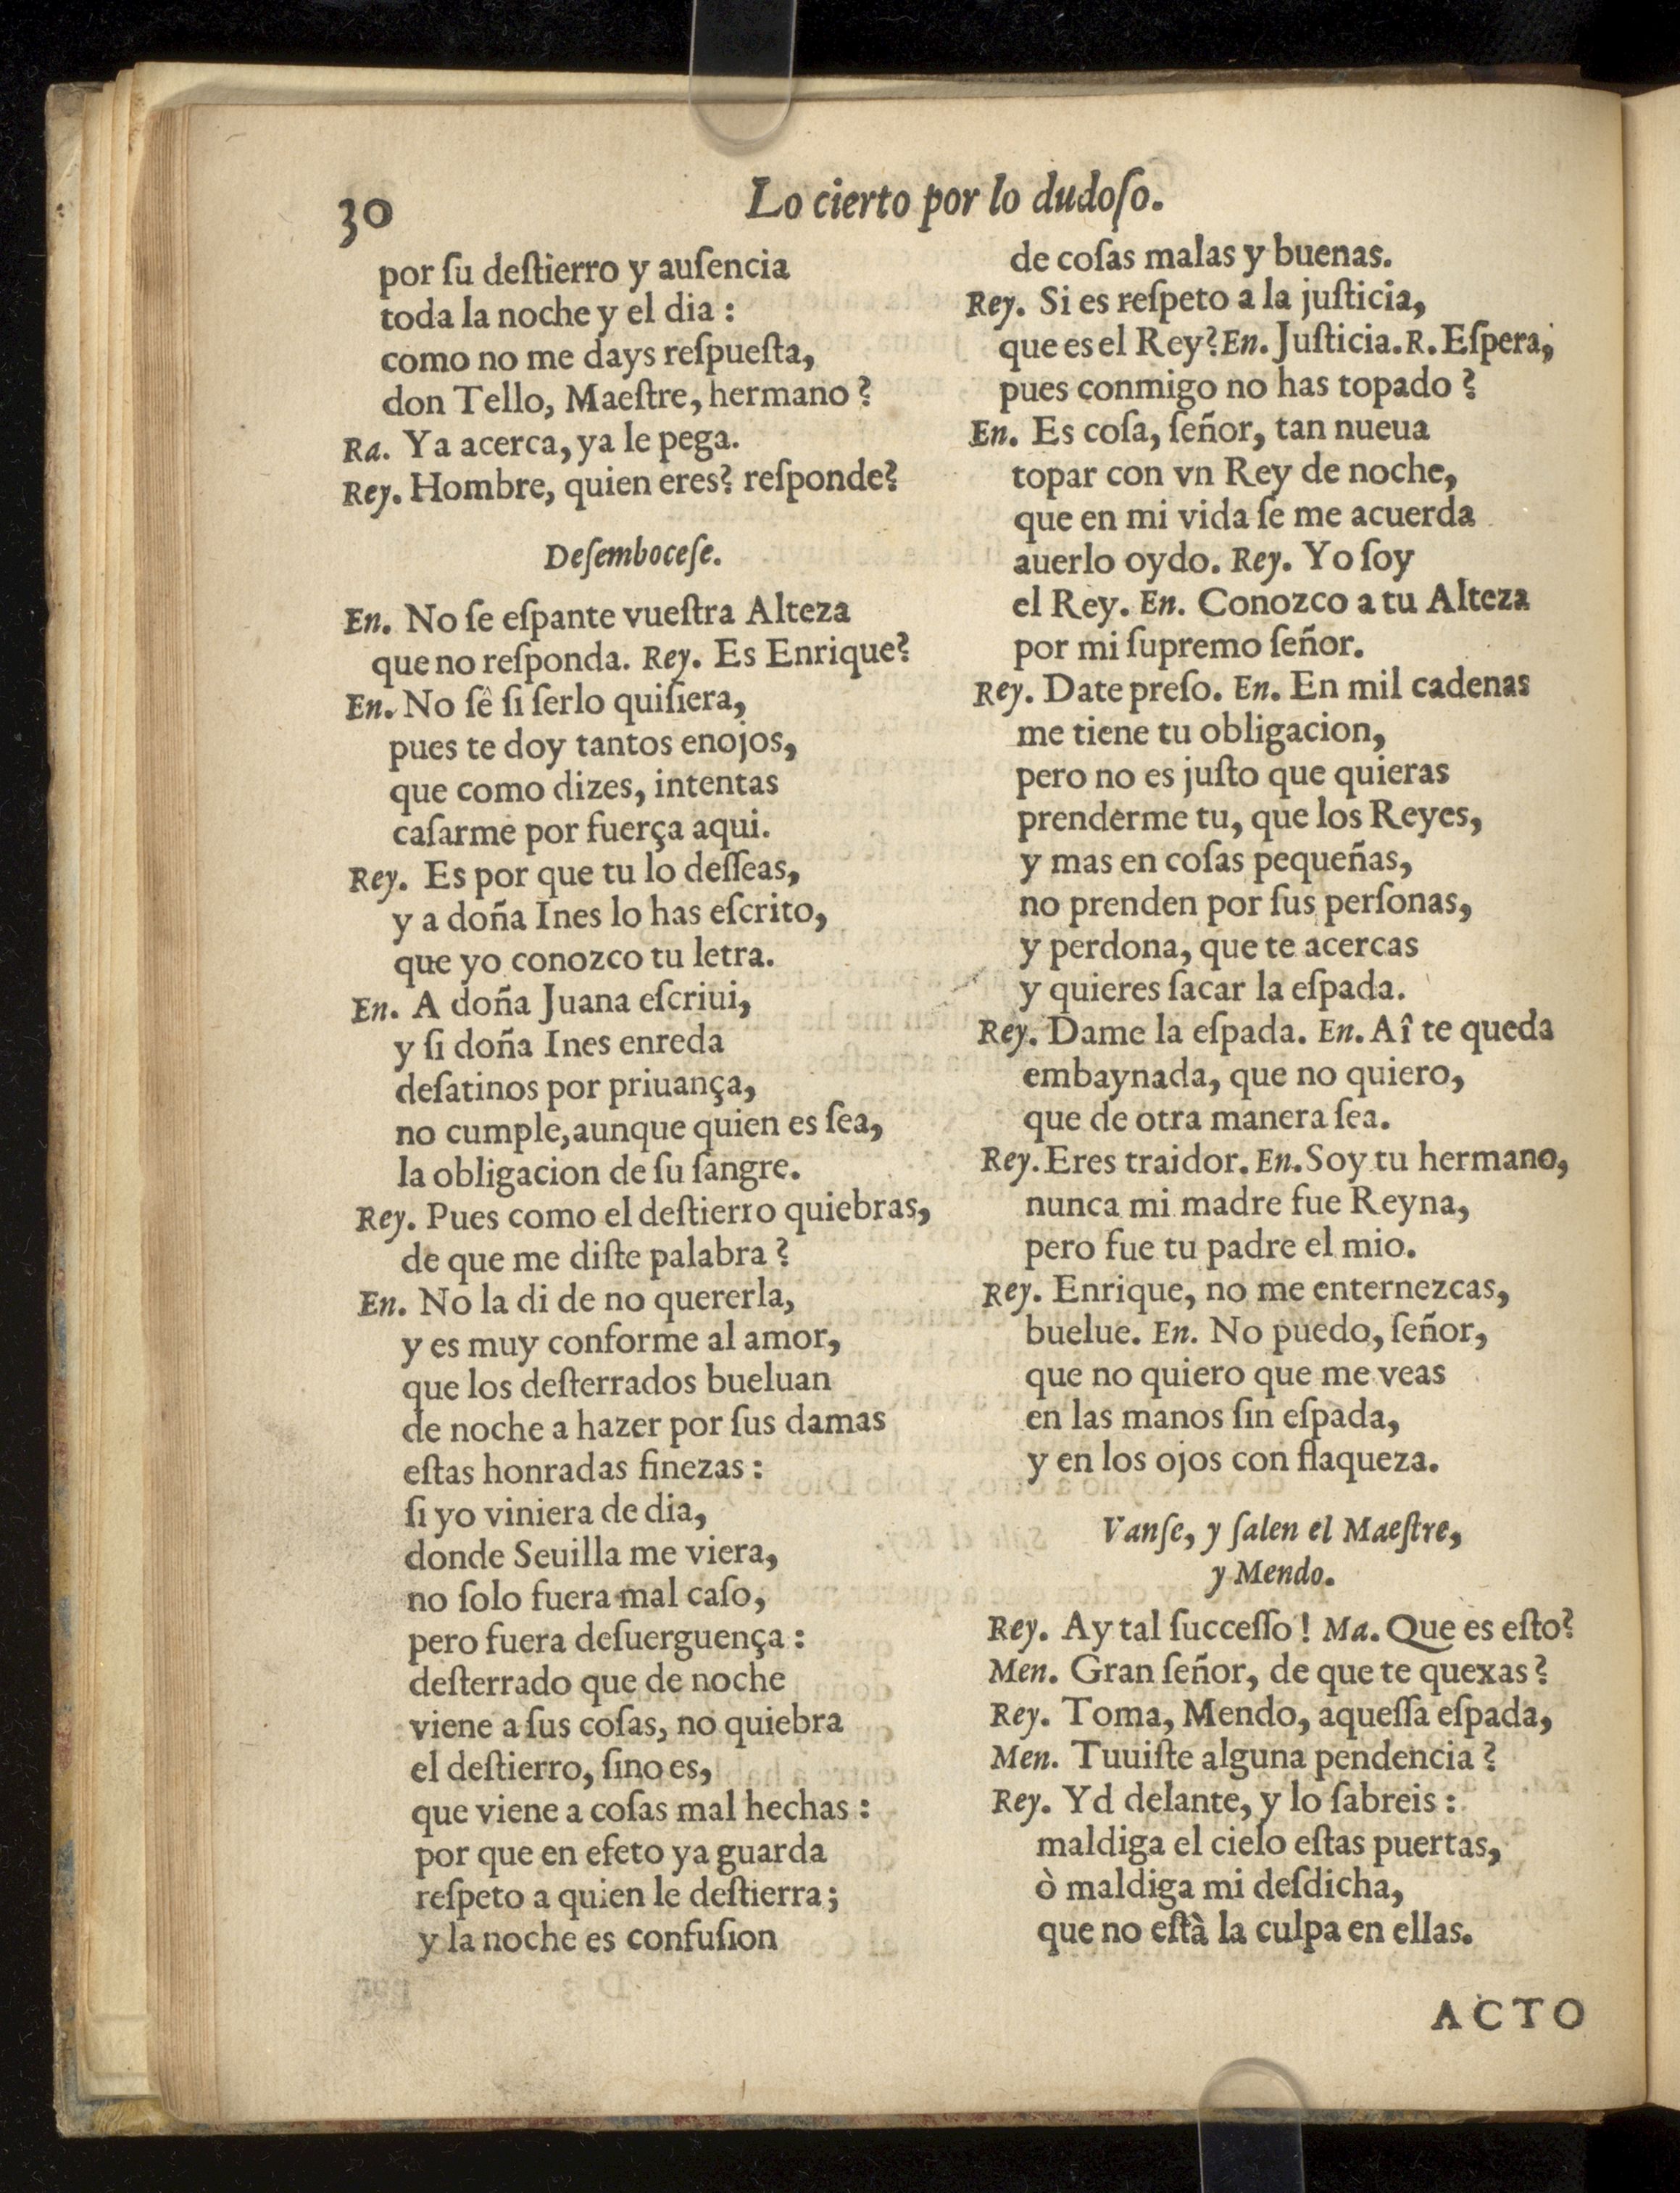 30
Lo cierto por lo dudoſo.
por ſu deſtierro y auſencia
toda la noche y el dia :
como no me days reſpueſta,
don Tello, Maeſtre, hermano ?
Ra. Ya acerca, ya le pega.
Rey. Hombre, quien eres? reſponde?
Deſemboceſe.
En. No ſe eſpante vueſtra Alteza
que no reſponda. Rey. Es Enrique?
En. No ſê ſi ſerlo quiſiera,
pues te doy tantos enojos,
que como dizes, intentas
caſarme por fuerça aqui.
Rey. Es por que tu lo deſſeas,
y a doña Ines lo has eſcrito,
que yo conozco tu letra.
En. A doña Juana eſcriui,
y ſi doña Ines enreda
deſatinos por priuança,
no cumple,aunque quien es ſea,
la obligacion de ſu ſangre.
Rey. Pues como el deſtierro quiebras,
de que me diſte palabra ?
En. No la di de no quererla,
y es muy conforme al amor,
que los deſterrados bueluan
de noche a hazer por ſus damas
eſtas honradas finezas :
ſi yo viniera de dia,
donde Seuilla me viera,
no ſolo fuera mal caſo,
pero fuera deſuerguença :
deſterrado que de noche
viene a ſus coſas, no quiebra
el deſtierro, ſino es,
que viene a coſas mal hechas :
por que en efeto ya guarda
reſpeto a quien le deſtierra ;
y la noche es confuſion
de coſas malas y buenas.
Rey. Si es reſpeto a la juſticia,
que es el Rey? En. Juſticia. R. Eſpera,
pues conmigo no has topado ?
En. Es coſa, ſeñor, tan nueua
topar con vn Rey de noche,
que en mi vida ſe me acuerda
auerlo oydo. Rey. Yo ſoy
el Rey. En. Conozco a tu Alteza
por mi ſupremo ſeñor.
Rey. Date preſo. En. En mil cadenas
me tiene tu obligacion,
pero no es juſto que quieras
prenderme tu, que los Reyes,
y mas en coſas pequeñas,
no prenden por ſus perſonas,
y perdona, que te acercas
y quieres ſacar la eſpada.
Rey. Dame la eſpada. En. Aî te queda
embaynada, que no quiero,
que de otra manera ſea.
Rey. Eres traidor. En. Soy tu hermano,
nunca mi madre fue Reyna,
pero fue tu padre el mio.
Rey. Enrique, no me enternezcas,
buelue. En. No puedo, ſeñor,
que no quiero que me veas
en las manos ſin eſpada,
y en los ojos con flaqueza.
Vanſe, y ſalen el Maeſtre,
y Mendo.
Rey. Ay tal ſucceſſo ! Ma. Que es eſto?
Men. Gran ſeñor, de que te quexas ?
Rey. Toma, Mendo, aqueſſa eſpada,
Men. Tuuiſte alguna pendencia ?
Rey. Yd delante, y lo ſabreis :
maldiga el cielo eſtas puertas,
ò maldiga mi deſdicha,
que no eſtà la culpa en ellas.
ACTO